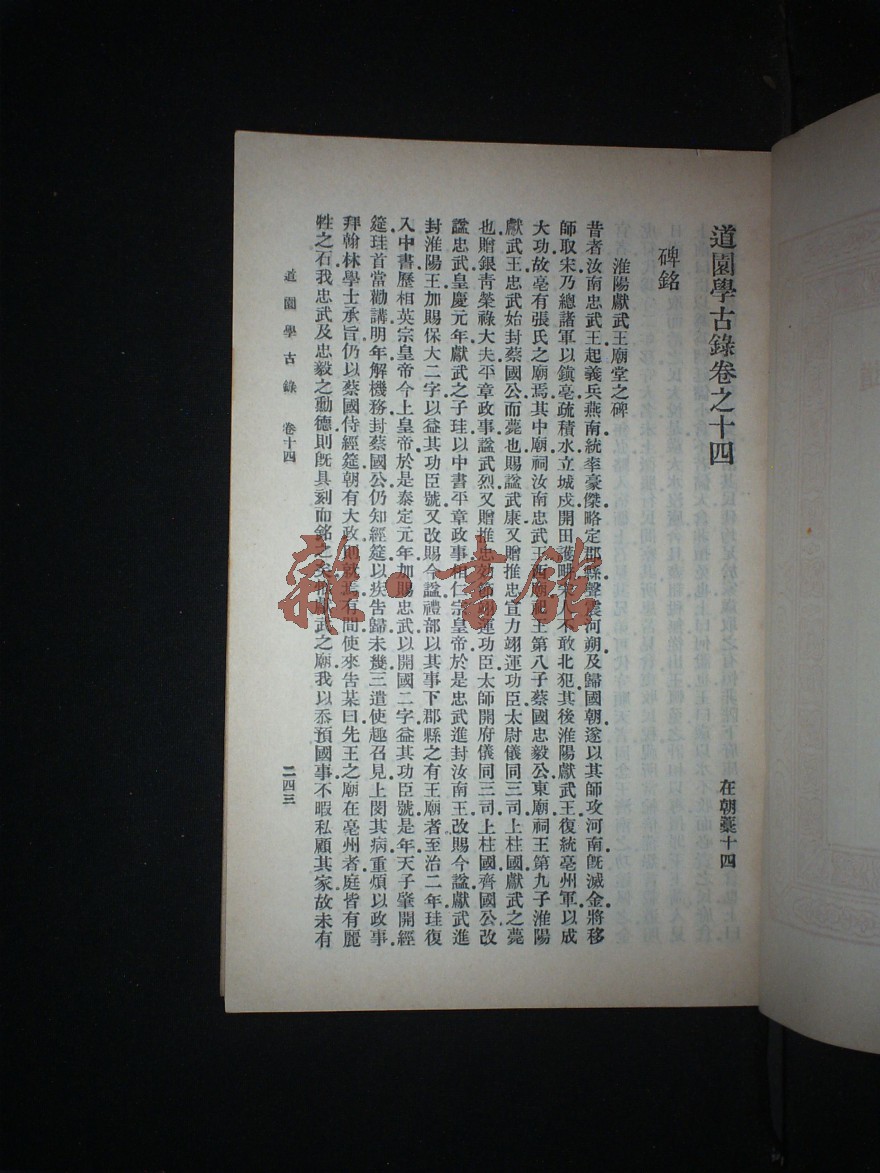 道園學古錄卷之十四
在朝藁十四
碑銘
淮陽獻武王廟堂之碑
昔者汝南忠武王起義兵燕南統率豪傑略定郡縣聲震河朔及歸國朝遂以其師攻河南旣滅金將移
師取宋乃總諸軍以鎭亳疏積水立城戍開田護畊宋人不敢北犯其後淮陽獻武王復統亳州軍以成
大功故亳有張氏之廟焉其中廟祠汝南忠武王西廟祀王第八子蔡國忠毅公東廟祠王第九子淮陽
獻武王忠武始封蔡國公而薨也賜諡武康又贈推忠宣力翊運功臣太尉儀同三司上柱國獻武之薨
也贈銀靑榮祿大夫平章政事諡武烈又贈推忠効節翊運功臣太師開府儀同三司上柱國齊國公改
諡忠武皇慶元年獻武之子珪以中書平章政事相仁宗皇帝於是忠武進封汝南王改賜今諡獻武進
封淮陽王加賜保大二字以益其功臣號又改賜今諡禮部以其事下郡縣之有王廟者至治二年珪復
入中書歷相英宗皇帝今上皇帝於是泰定元年加賜忠武以開國二字益其功臣號是年天子肇開經
筵珪首當勸講明年解機務封蔡國公仍知經筵以疾告歸未幾三遣使趣召見上閔其病重煩以政事
拜翰林學士承旨仍以蔡國侍經筵朝有大政則就焉有間使來告某曰先王之廟在亳州者庭皆有麗
牲之石我忠武及忠毅之勳德則旣具刻而銘之矣惟獻武之廟我以忝預國事不暇私顧其家故未有
道園學古錄 卷十四
二四三
雜·書館